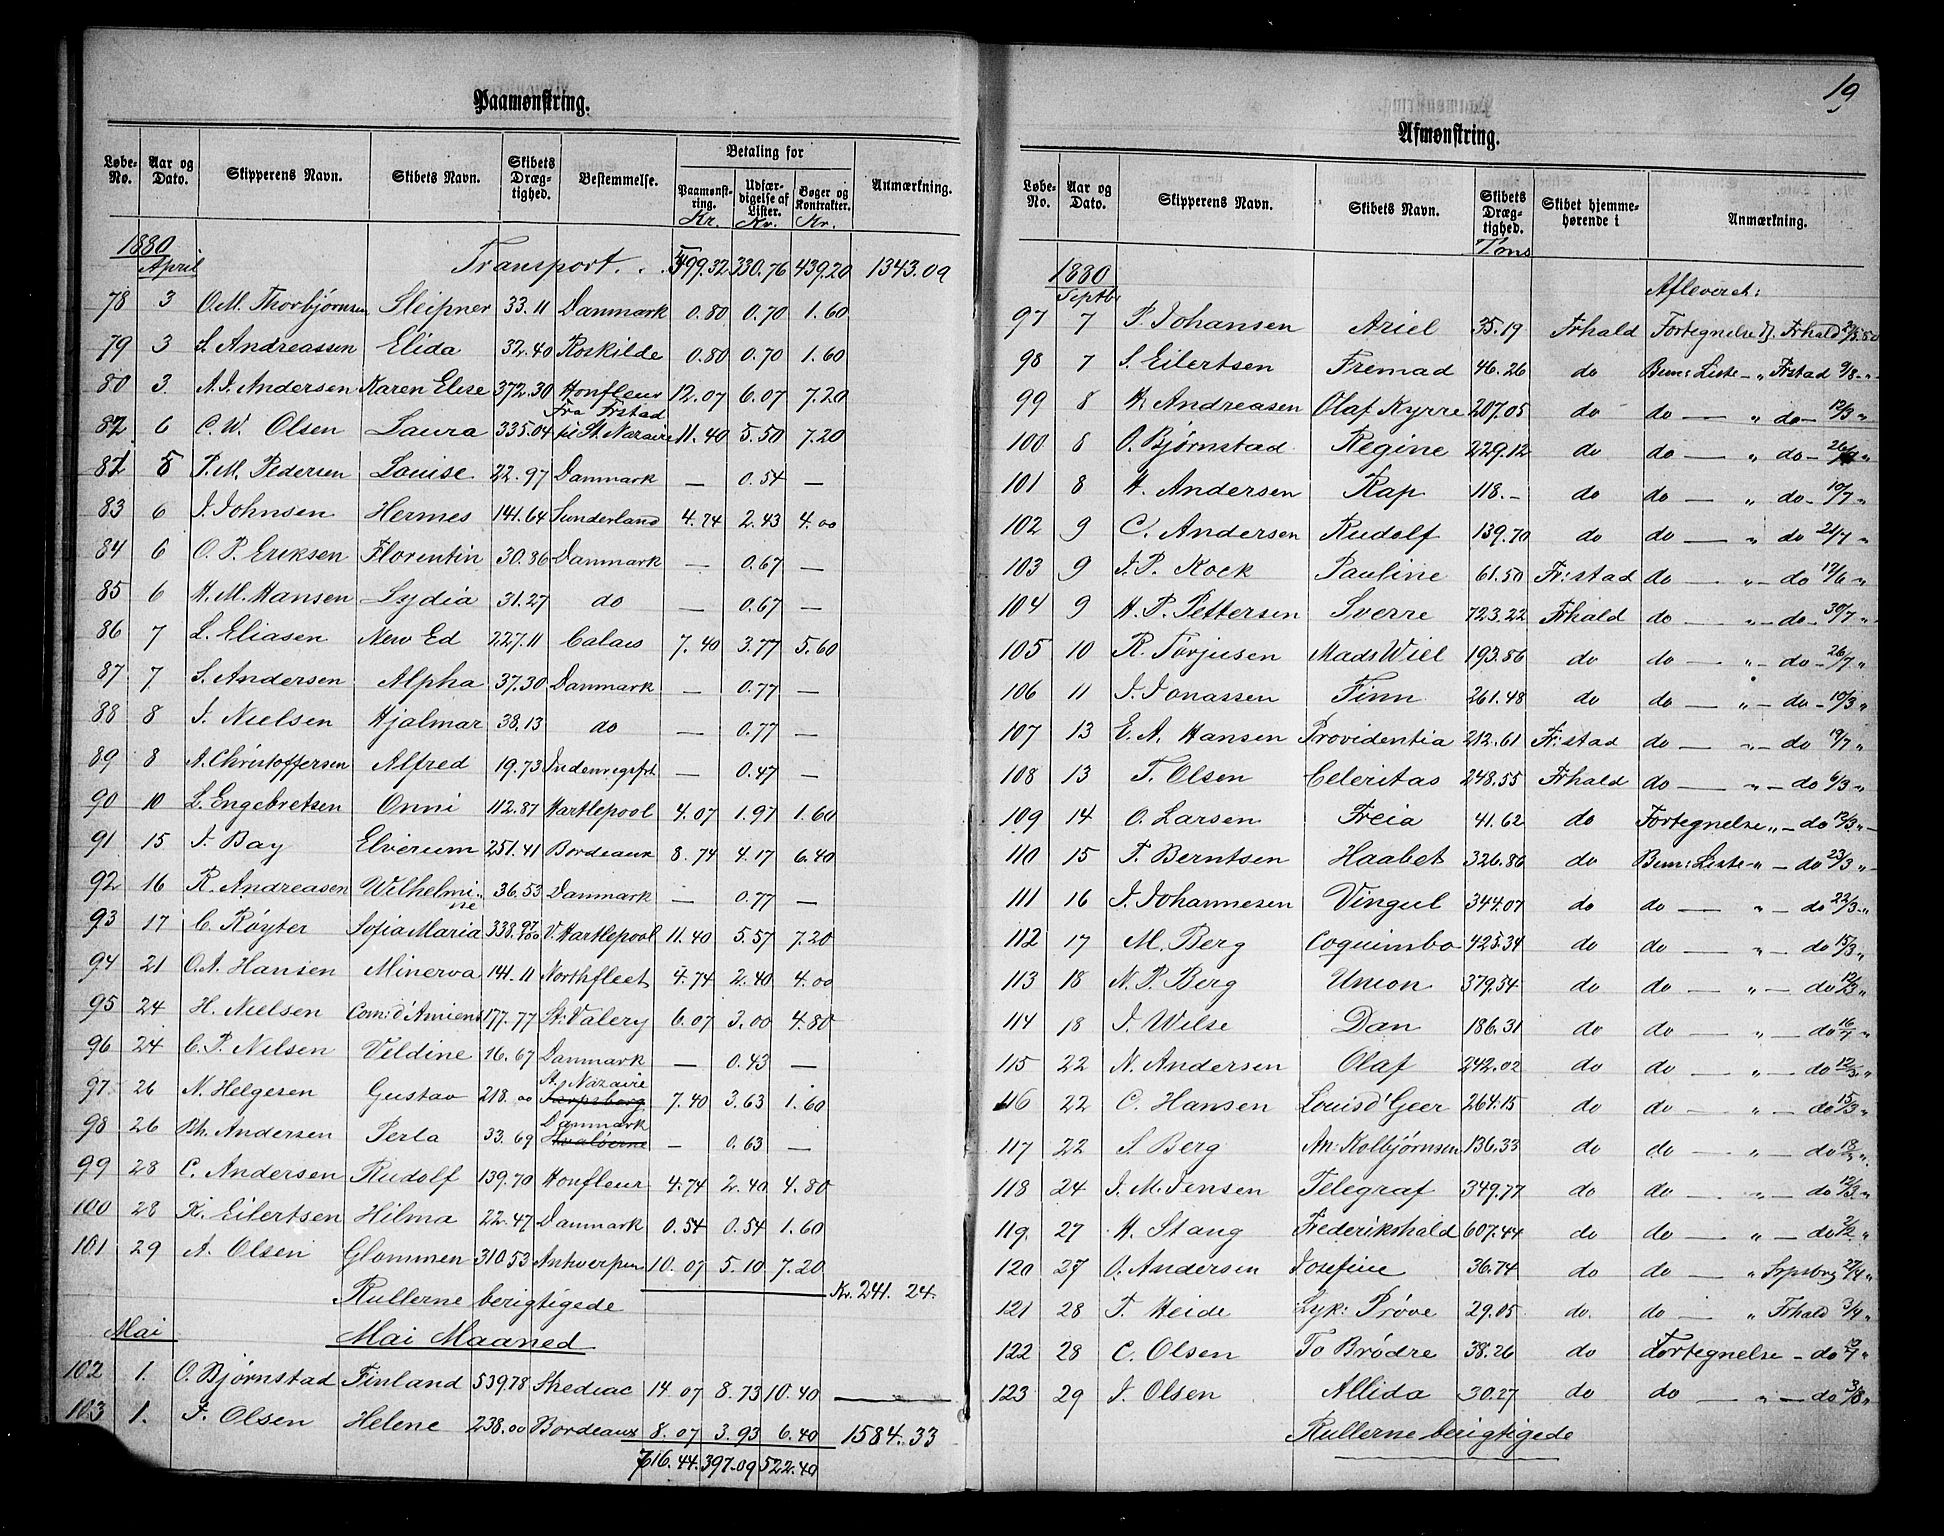 Paamønstring.
Løbe-No. Aar og Dato. Skipperens Navn. Skibets Navn. Skibets Drægtighed. Bestemmelse. Betaling for Paamønstring. Udfærdigelse af Lister. Bøger og Kontrakter. Anmærkning.
Kr. Kr. Kr.
1880
April Transport. . 599.32 330.76 439.20 1343.09
78 3 O. M. Thorbjørnsen Sleipner 33.11 Danmark 0.80 0.70 1.60
79 3 S. Andreassen Elida 32.40 Roskilde 0.80 0.70 1.60
80 3. A. J. Andersen Karen Elise 372.30 Honfleur 12.07 6.07 7.20
Fra Frstad
82 6 C. W. Olsen Laura 335.04 til St. Nazaire 11.40 5.50 7.20
81 5 P. M. Pedersen Louise 22.97 Danmark — 0.54 —
83 6 J. Johnsen Hermes 141.64 Sunderland 4.74 2.43 4.00
84 6 O. P. Eriksen Florentin 30.86 Danmark — 0.67 —
85 6 H. M. Hansen Lydia 31.27 do — 0.67 —
86 7 L. Eliasen New Ed 227.11 Calais 7.40 3.77 5.60
87 7 S. Andersen Alpha 37.30 Danmark — 0.77 —
88 8 J. Nielsen Hjalmar 38.13 do — 0.77 —
89 8 A. Christoffersen Alfred 19.73 Indenrigsfrt — 0.47 —
90 10 L. Engebretsen Onni 112.87 Hartlepool 4.07 1.97 1.60
91 15 J. Bay Elverum 251.41 Bordeaux 8.74 4.17 6.40
92 16 R. Andreasen Wilhelmine 36.53 Danmark — 0.77 —
93 17 C. Røyter Sofia Maria 338.97/00 V. Hartlepool 11.40 5.57 7.20
94 21 O. A. Hansen Minerva 141.11 Northfleet 4.74 2.40 4.00
95 24 H. Nielsen Com: d'Amiens 177.77 St: Valery 6.07 3.00 4.80
96 24 C. P. Nilsen Veldine 16.67 Danmark — 0.43 —
St. Nazaire
97 26 N. Helgesen Gustav 218.00 Sarpsborg 7.40 3.63 1.60
Danmark
98 26 Bh. Andersen Perla 33.69 Hvaløerne — 0.63 —
99 28 C. Andersen Rudolf 139.70 Honfleur 4.74 2.40 4.80
100 28 K. Eilertsen Hilma 22.47 Danmark 0.54 0.54 1.60
101 29 A. Olsen Glommen 310.53 Antwerpen 10.07 5.10 7.20
Rullerne berigtigede Kr. 241.24.
Mai Mai Maaned
102 1. O. Bjørnstad Finland 539.78 Shediac 14.07 8.73 10.40
103 1. J. Olsen Helene 238.00 Bordeaux 8.07 3.93 6.40 1584.33
716.44. 397.09 522.40
19
Afmønstring.
Løbe-No. Aar og Dato. Skipperens Navn. Skibets Navn. Skibets Drægtighed. Skibet hjemmehørende i Anmærkning.
Tons
1880
Septbr Afleveret:
97 7 P. Johansen Ariel 35.19 Frhald Fortegnelse Frhald
98 7 S. Eilertsen Fremad 46.26 do Bem: Liste — „ Frstad 9/8 „
99 8 H. Andreasen Olaf Kyrre 207.05 do do — „ do — 12/3 „
100 8 O. Bjørnstad Regine 229.12 do do — „ do „
101 8 H. Andersen Kap 118.— do do — „ do — 10/7 „
102 9 C. Andersen Rudolf 139.70 do do — „ do 21/7 „
103 9 J. P. Kock Pauline 61.50 Fr:stad do — „ — do 12/6 „
104 9 H. P. Pettersen Sverre 723.22 Frhald do — „ — do 30/7 „
105 10 R. Torjusen Mads Wiel 193.86 do do — „ — do 26/7 „
106 11 J. Jonassen Finn 261.48 do do — „ — do 10/3 „
107 13 E. A. Hansen Providentia 212.61 Fr:stad do — „ — do 19/7 „
108 13 T. Olsen Celeritas 248.55 Frhald do — „ — do 6/3 „
109 14 O. Larsen Freia 41.62 do Fortegnelse „ — do 12/3 „
110 15 T. Berntsen Haabet 326.86 do Bem: Liste „ — do 23/3 „
111 16 J. Johannesen Vingul 344.07 do do — „ — do 22/3 „
112 17 M. Berg Coquimbo 425.34 do do — „ — do 15/3 „
113 18 N. P. Berg Union 379.54 do do — „ — do 12/3 „
114 18 J. Wilse Dan 186.31 do do — „ — do 16/7 „
115 22 N. Andersen Olaf 242.02 do do — „ — do 12/3 „
116 22 C. Hansen Louis d'Geer 264.15 do do — „ — do 15/3 „
117 22 S. Berg An: Kolbjørnsen 136.33 do do — „ — do „
118 24 J. M. Jensen Telegraf 349.77 do do — „ — do 12/3 „
119. 27 H. Stang Frederikshald 607.44 do do — „ — do 2/2 „
120 27 O. Andersen Josefine 36.74 do do — „ Srpsbrg 27/4 „
121 28 T. Heide Lyk: Prøve 29.05 do. do — „ Frhald 3/4 „
122 28 C. Olsen To Brødre 38.26 do Fortegnelse — do 19/7 „
123 29 J. Olsen Allida 30.27 do do — „ — do 3/8 „
Rullerne berigtigede